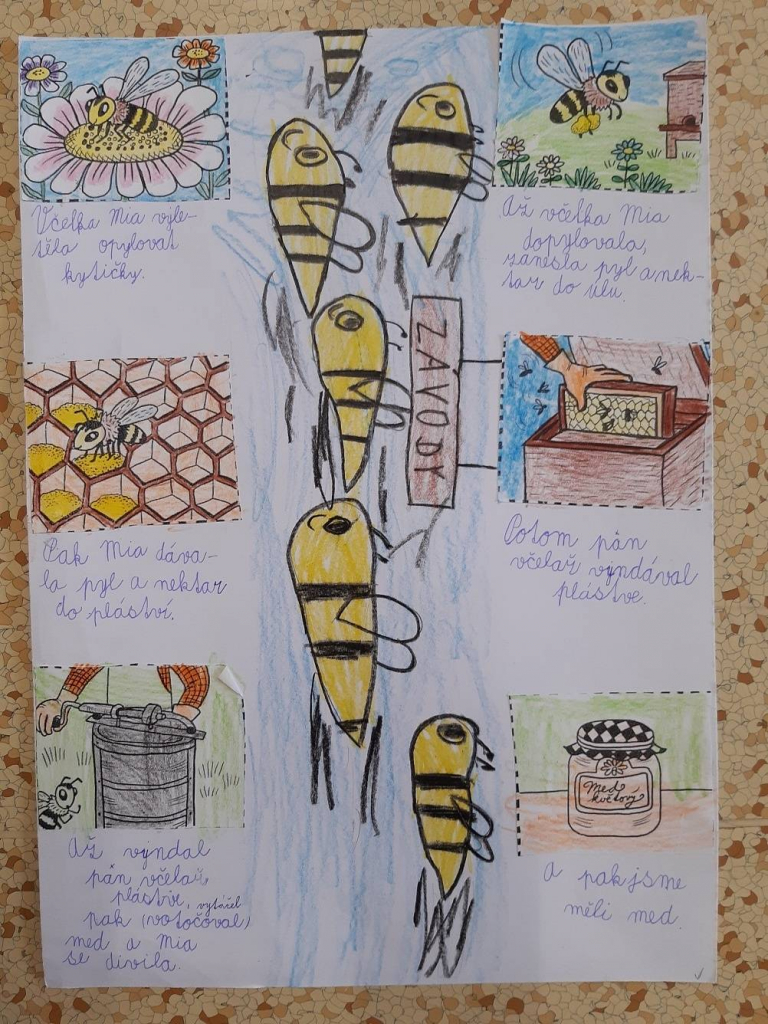 Včelka Mia vyle-
těla opylovat
kytičky.
Až včelka Mia
dopylovala,
zanesla pyl a nek-
tar do úlu.
ZÁVODY
Pak Mia dáva-
la pyl a nektar
do pláství.
Potom pán
včelař vyndával
plástve.
Až vyndal
pán včelař,
plástve, vytáčel
pak (votočoval)
med a Mia
se divila.
Med
květový
A pak jsme
měli med.